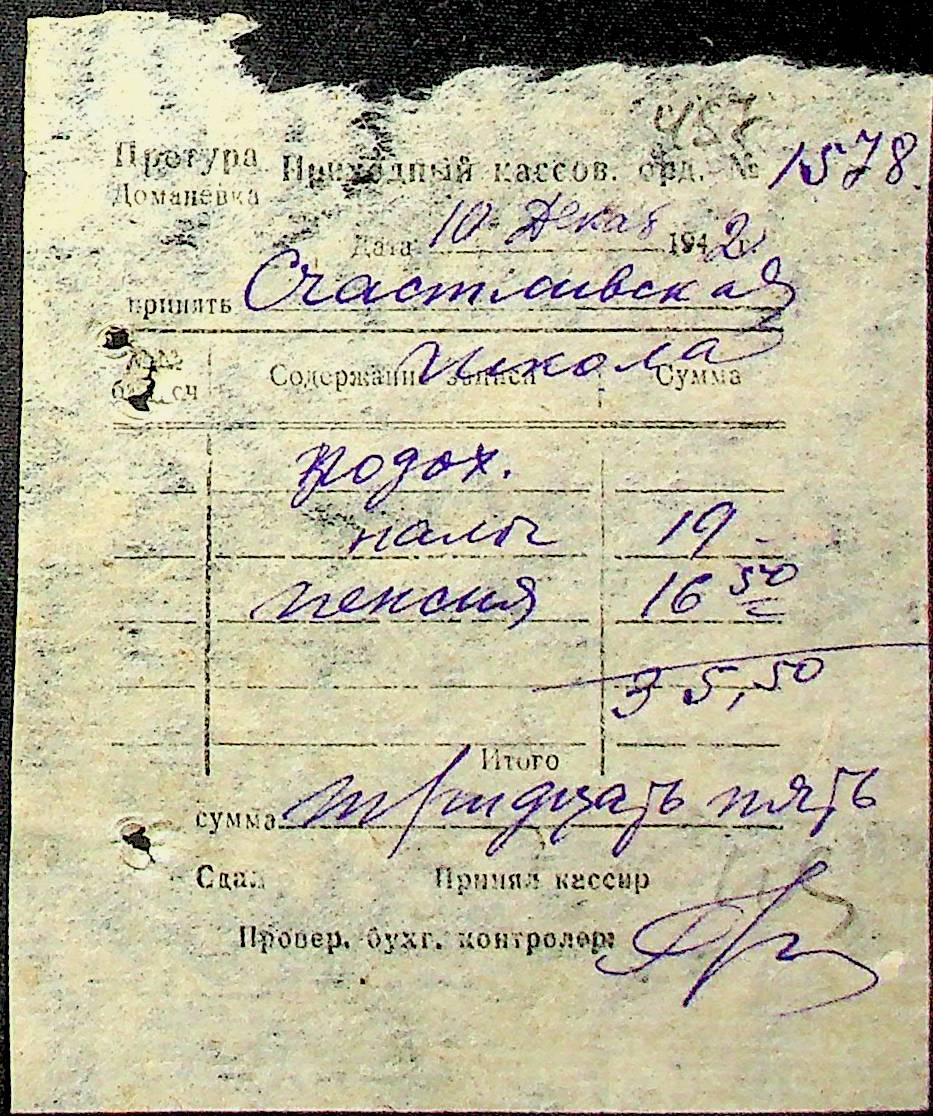 457
Претура Приходный кассов. орд. № 1578.
Доманевка
Дата 10 Декаб 1942 г.
принять Счастливская
школа
№№ Содержание записи Сумма
подох.
налог 19 -
пенсия 16 50
35,50
Итого
сумма тридцать пять
Сдал Принял кассир
Провер. бухг. контролер: